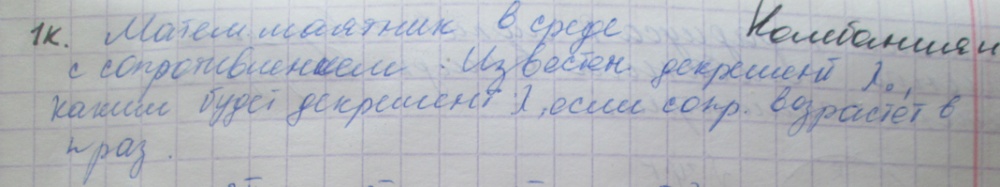 1к. Матем. маятник в среде Комбаншян
с сопротивлением. Известен декремент λ₀,
каким будет декремент λ, если сопр. возрастёт в
n раз.